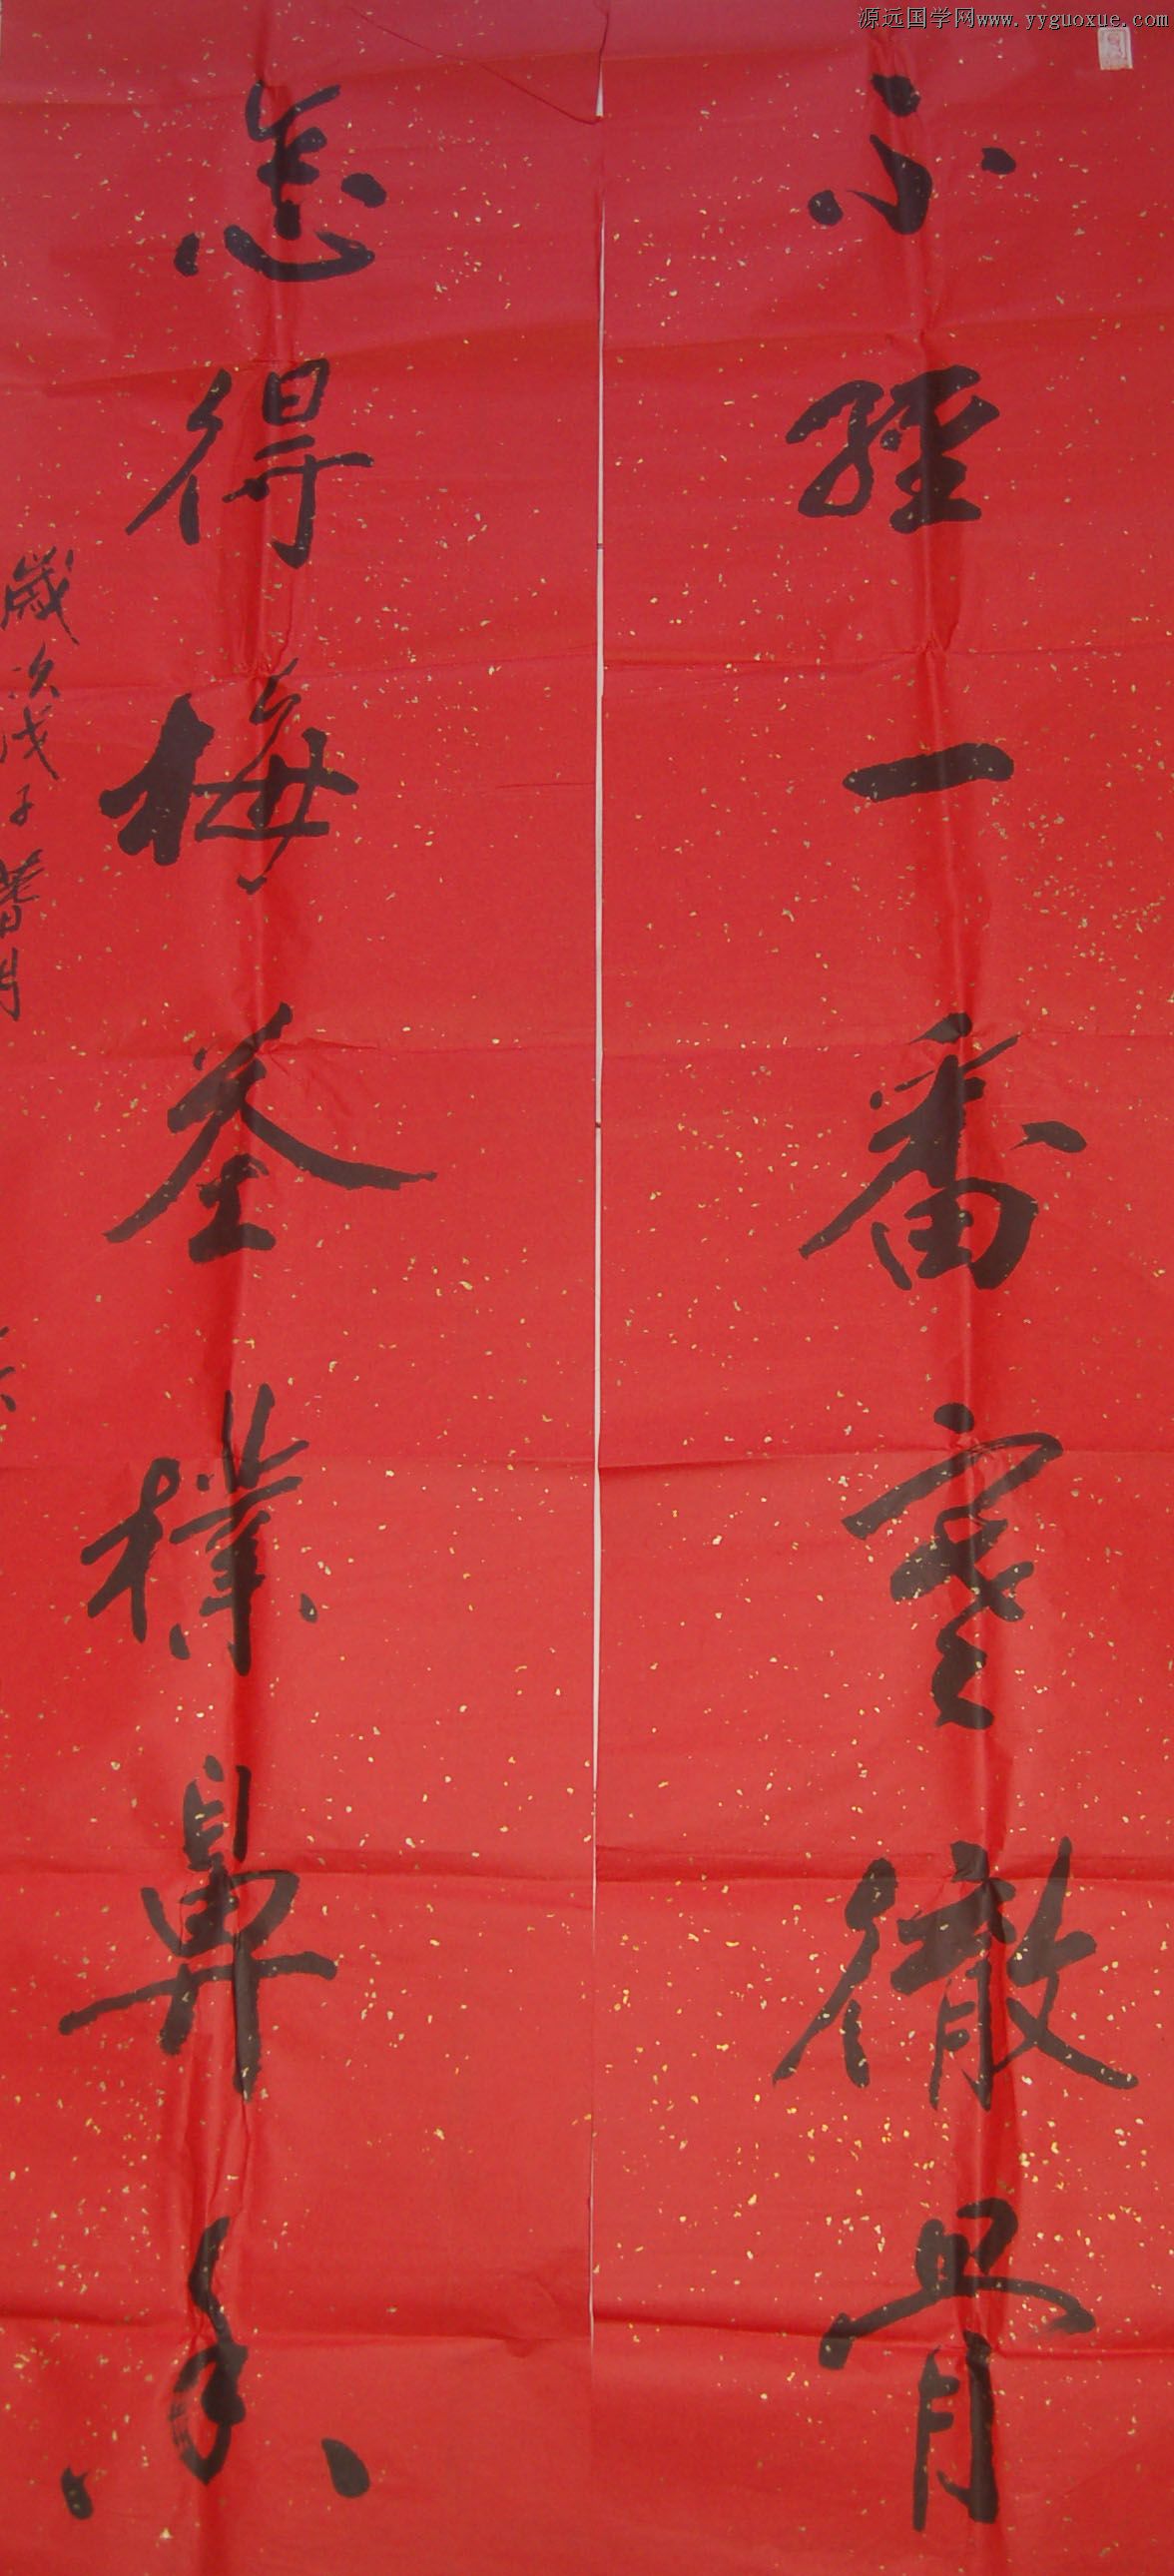 源远国学网www.yyguoxue.com
不經一番寒徹骨
怎得梅花樸鼻香
歲次戊子